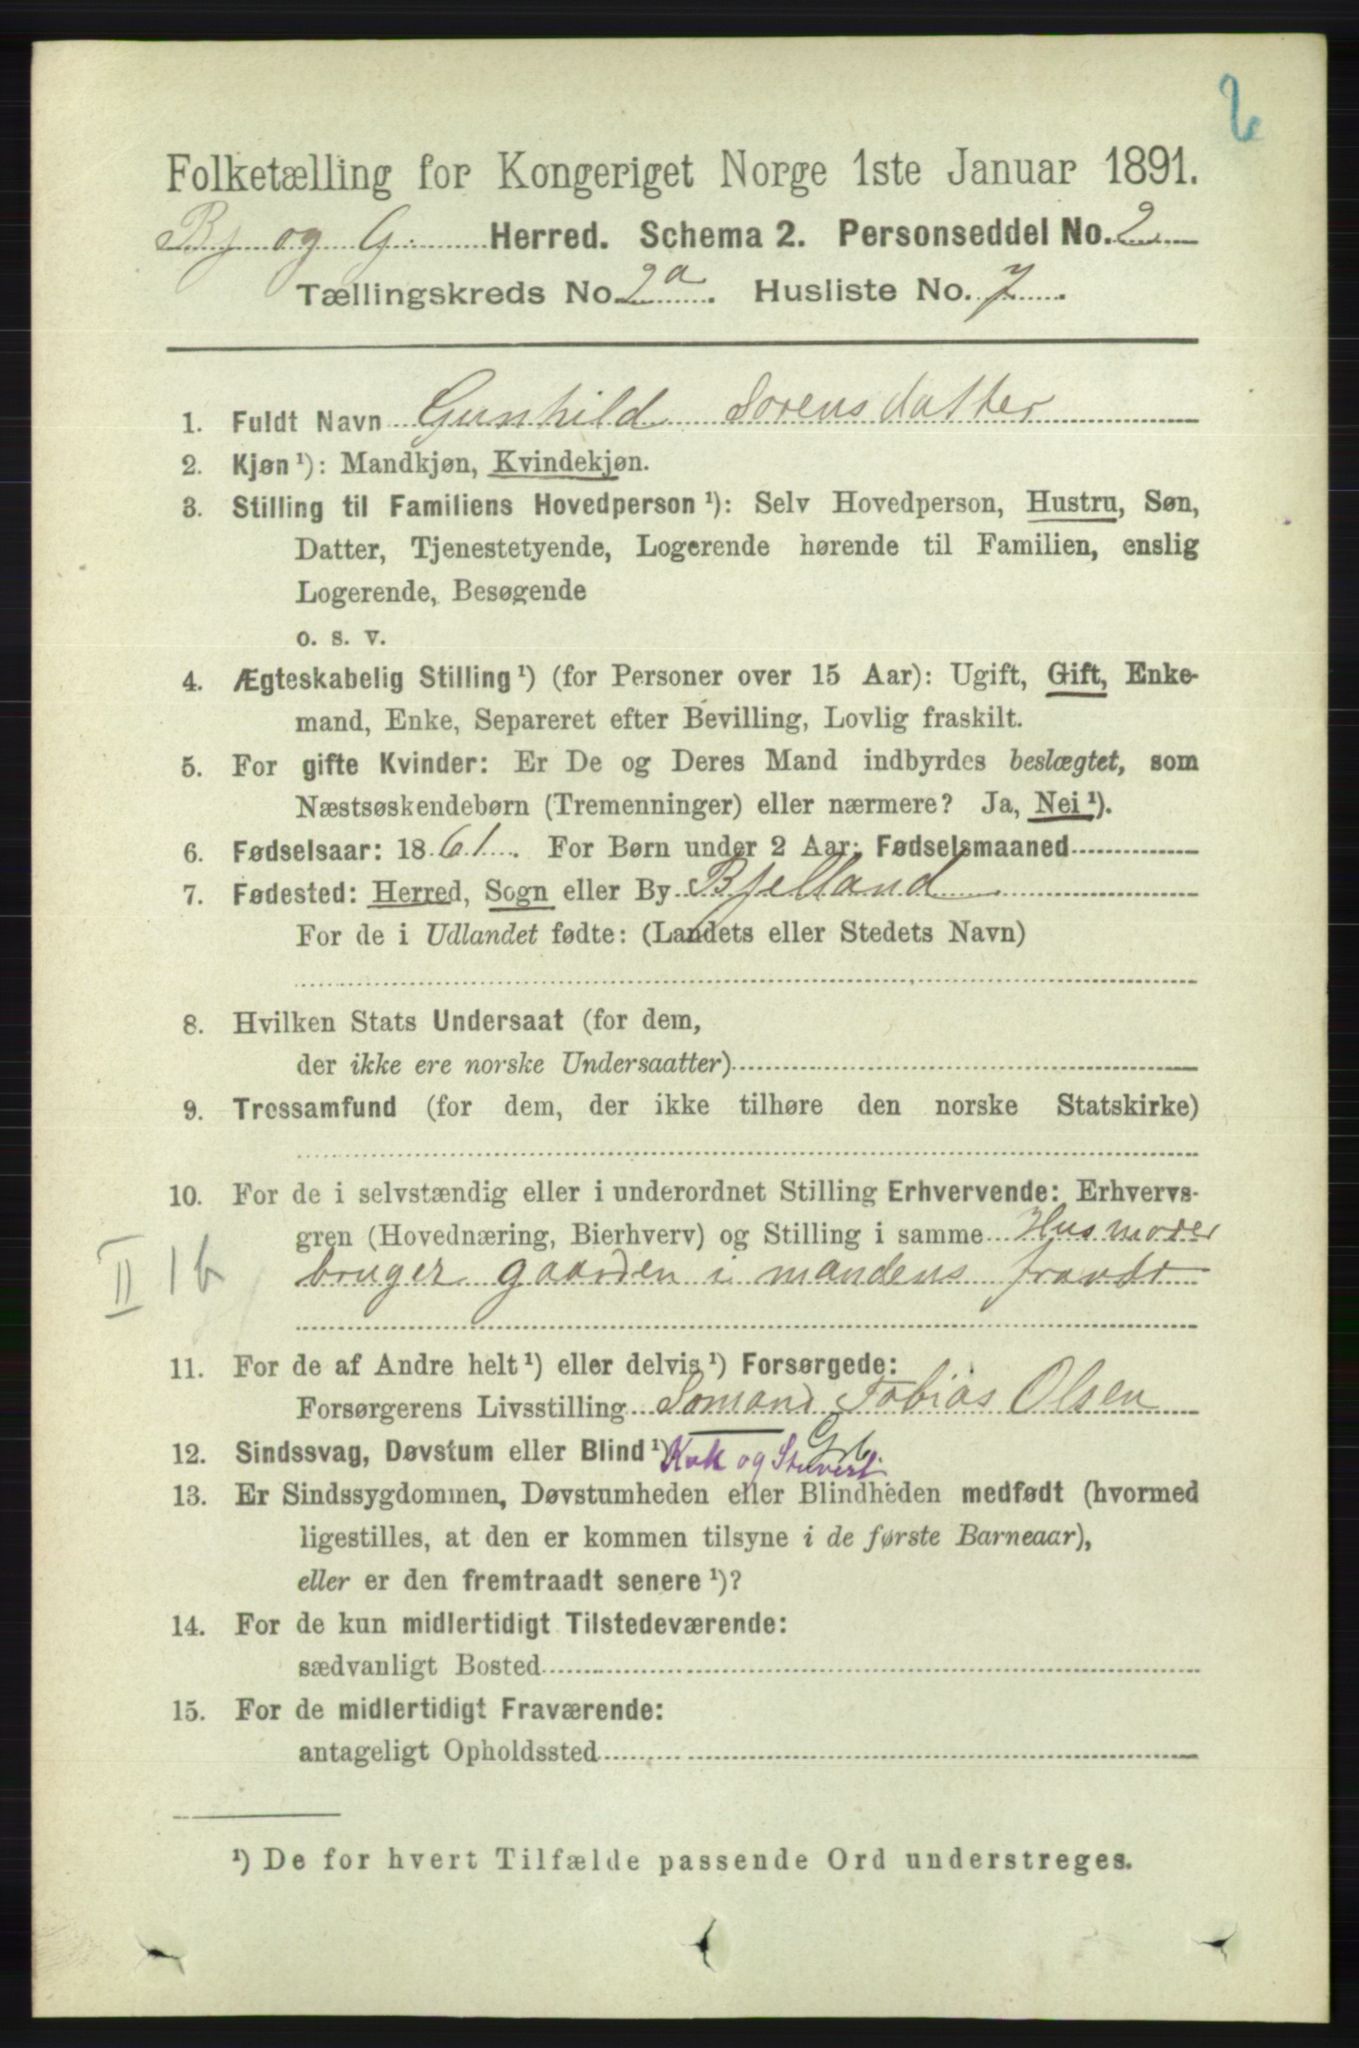 2
Folketælling for Kongeriget Norge 1ste Januar 1891.
Bj og G. Herred. Schema 2. Personseddel No. 2
Tællingskreds No. 2a. Husliste No. 7.
1. Fuldt Navn Gunhild Sorensdatter
2. Kjøn ¹): Mandkjøn, Kvindekjøn.
3. Stilling til Familiens Hovedperson ¹): Selv Hovedperson, Hustru, Søn,
Datter, Tjenestetyende, Logerende hørende til Familien, enslig
Logerende, Besøgende
o. s. v.
4. Ægteskabelig Stilling ¹) (for Personer over 15 Aar): Ugift, Gift, Enke-
mand, Enke, Separeret efter Bevilling, Lovlig fraskilt.
5. For gifte Kvinder: Er De og Deres Mand indbyrdes beslægtet, som
Næstsøskendebørn (Tremenninger) eller nærmere? Ja, Nei ¹).
6. Fødselsaar: 1861. For Børn under 2 Aar: Fødselsmaaned
7. Fødested: Herred, Sogn eller By Bjelland
For de i Udlandet fødte: (Landets eller Stedets Navn)
8. Hvilken Stats Undersaat (for dem,
der ikke ere norske Undersaatter)
9. Trossamfund (for dem, der ikke tilhøre den norske Statskirke)
10. For de i selvstændig eller i underordnet Stilling Erhvervende: Erhvervs-
gren (Hovednæring, Bierhverv) og Stilling i samme Husmoder
II 1b bruger gaarden i mandens
11. For de af Andre helt ¹) eller delvis ¹) Forsørgede:
Forsørgerens Livsstilling Somand Tobias Olsen
12. Sindssvag, Døvstum eller Blind ¹) Kok og Stuvert
13. Er Sindssygdommen, Døvstumheden eller Blindheden medfødt (hvormed
ligestilles, at den er kommen tilsyne i de første Barneaar),
eller er den fremtraadt senere ¹)?
14. For de kun midlertidigt Tilstedeværende:
sædvanligt Bosted
15. For de midlertidigt Fraværende:
antageligt Opholdssted
¹) De for hvert Tilfælde passende Ord understreges.